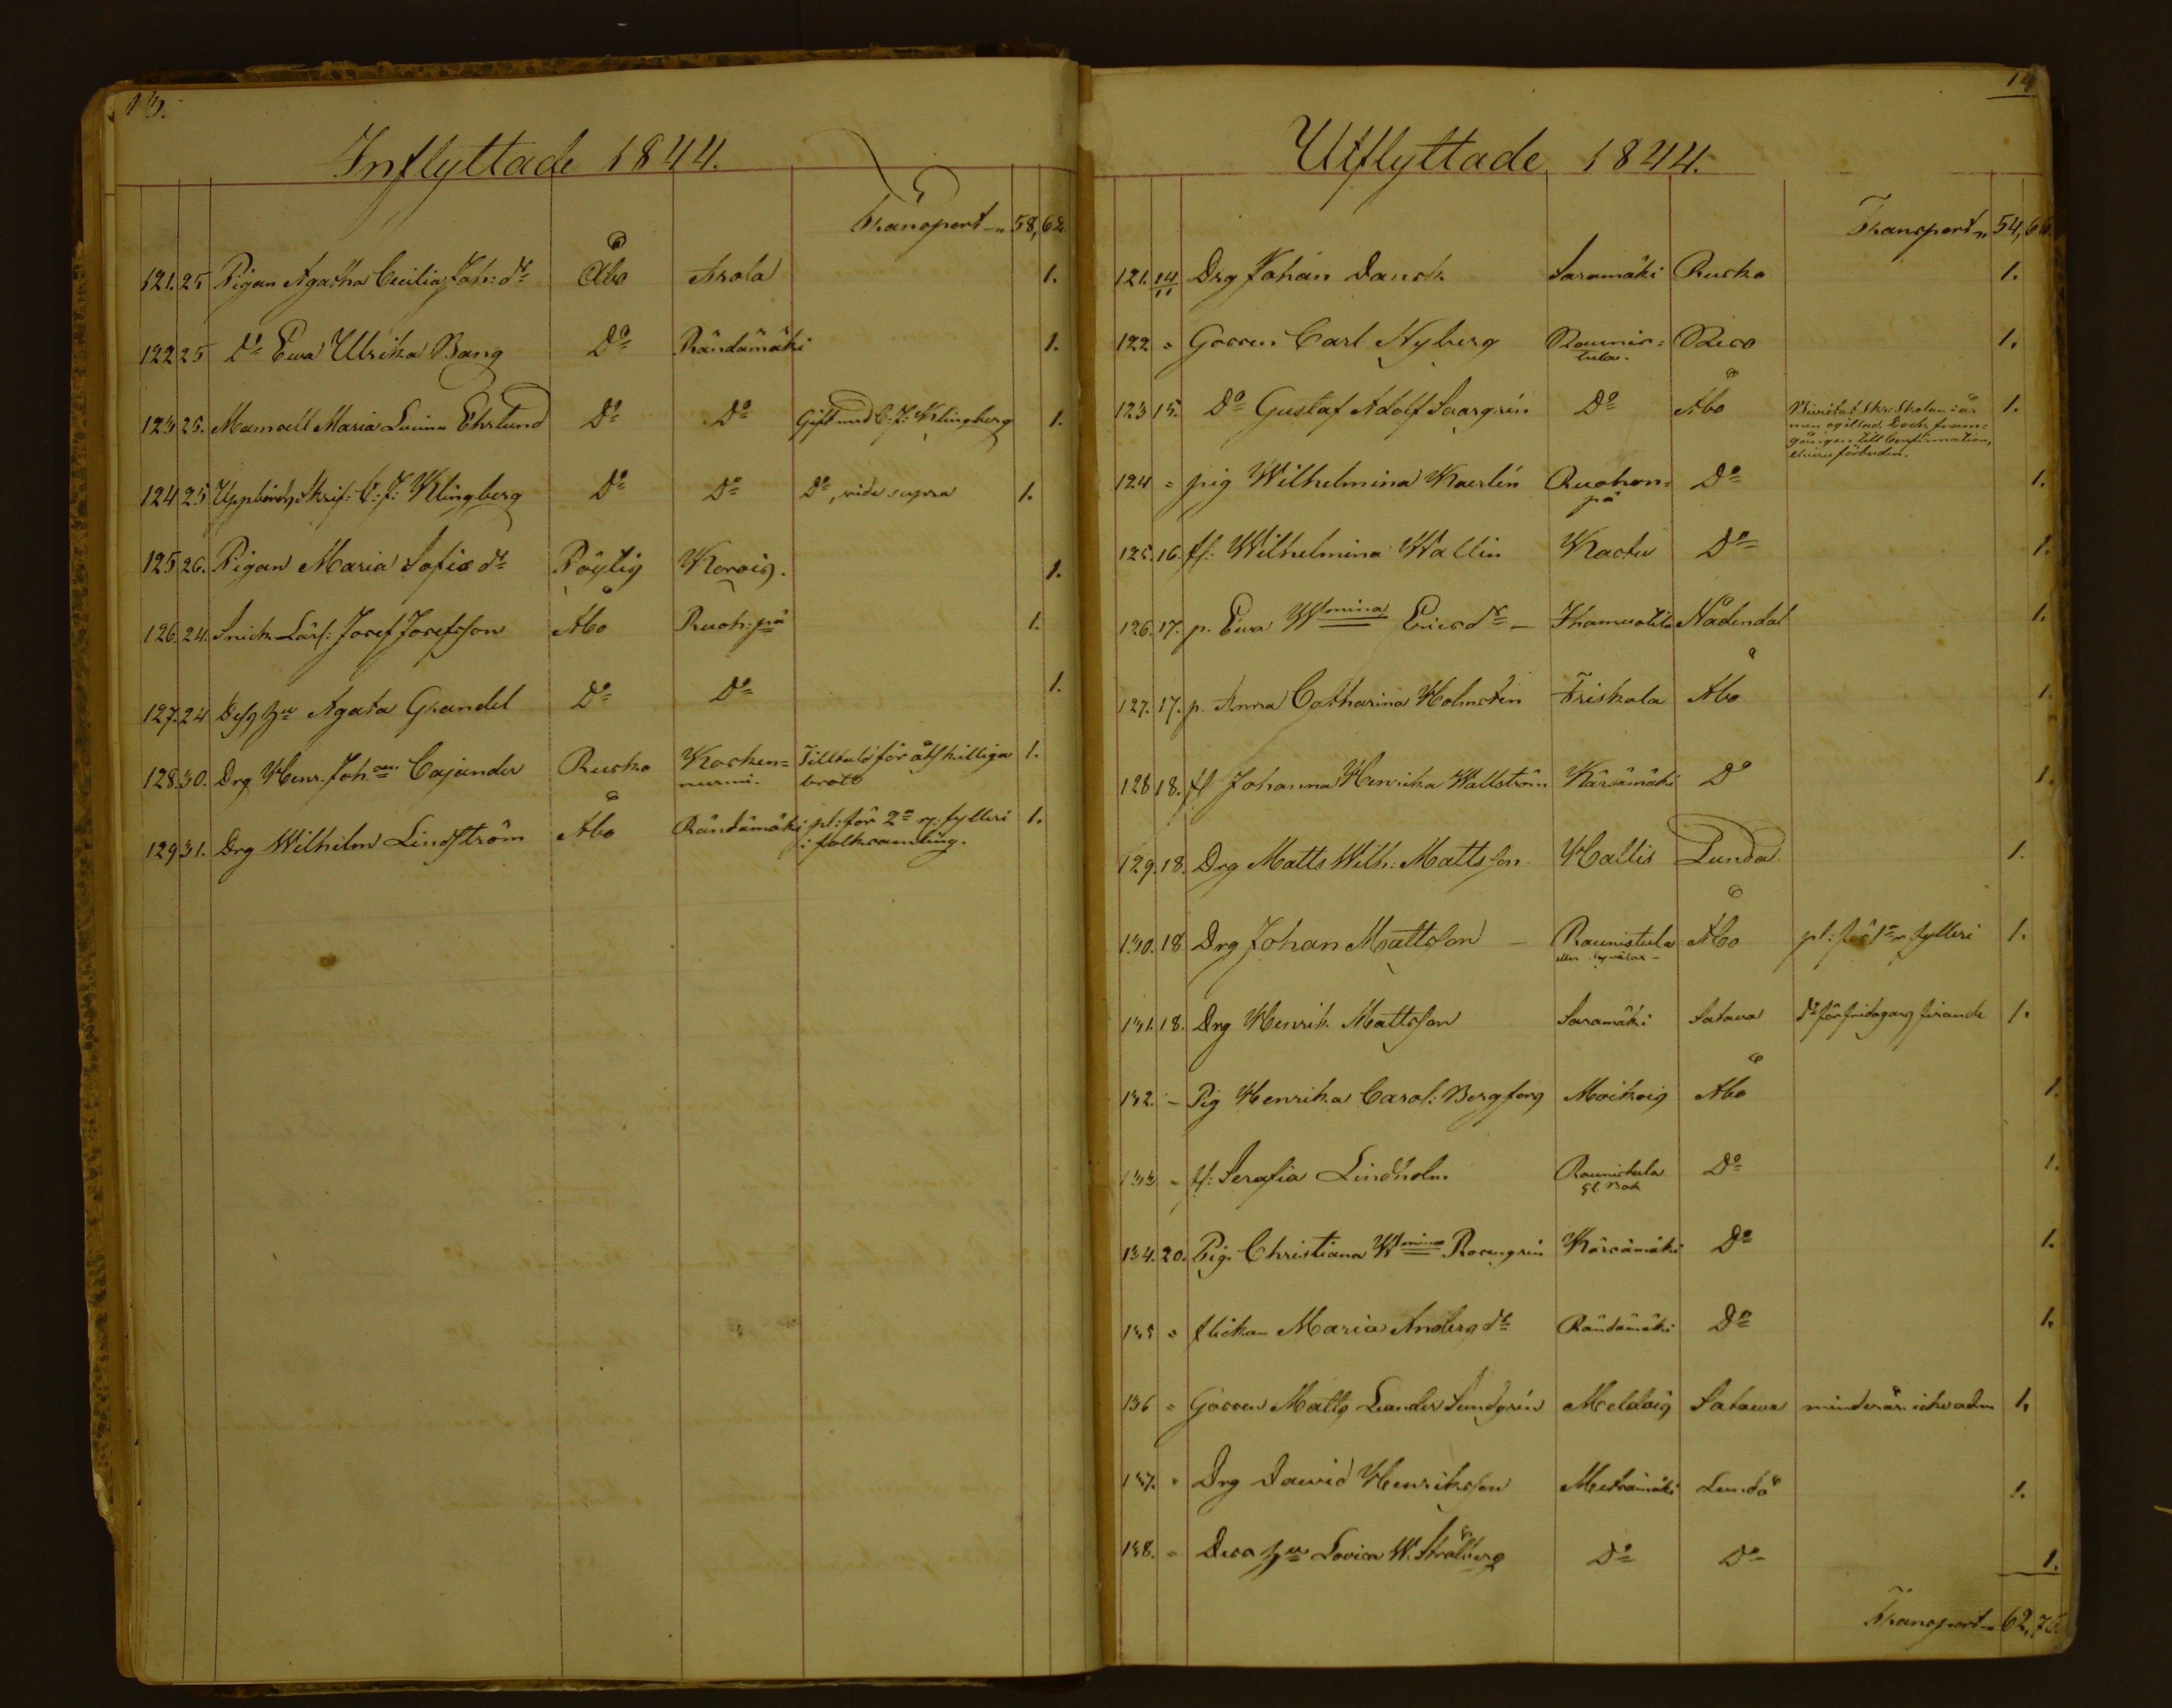 13.
Inflyttade 1844.
Transport 58, 62
121. 25 Pigan Agatha Cecilia Joh: dr Åbo Arola 1.
122 25 Do Ewa Ulrika Bang Do Rändämäki 1.
123 25. Mamsell Maria Lovina Ehrlund Do Do Gift med C: J: Klingberg 1.
124 25 Uppbörds Skrif: C: J: Klingberg Do Do Do, vide supra 1.
125 26. Pigan Maria Sofia dr Pöytis Korois. 1.
126. 24. Snick. Lärl: Josef Josefsson Åbo Ruoh: pä 1.
127. 24 Agata Grandel Do Do 1.
128. 30. Drg Henr. Johan Cajander Rusko Kocken= Tilltald för åtskilliga 1.
nurmi. brott
129 31. Drg Wilhelm Lindström Åbo Rändämäki pl: för 2a rg: fylleri 1.
i folksamling.
14
Utflyttade 1844.
Transport 54, 66.
121. 14/11 Drg Johan Dansk Saramäki Rusko 1.
122 " Gossen Carl Nyberg Raunis= Reso 1.
tula.
123 15. Do Gustaf Adolf Saargrén Do Åbo 1.
men ogillad. Dock fram=
gången till Confirmation,
förbuden.
124 " pig Wilhelmina Kaerlén Ruohon= Do 1.
pä
125. 16. fl: Wilhelmina Wallin Kastu Do 1.
126. 17. p. Ewa Wmina Ericsdr Nådendal 1.
127. 17. p. Anna Catharina Holmstén Friskala Åbo 1.
128 18. fl Johanna Henrika Wallström Kärsämäki Do 1.
129. 18. Drg Matts Wilh: Mattsson Hallis Lundo 1.
130. 18 Drg Johan Mattsson Raunistula Åbo pl: för 1a r. fylleri 1.
eller
131. 18. Drg Henrik Mattsson Saramäki Satava Do för fridagars firande 1.
132. – Pig Henrika Carol: Bergfors Moikois Åbo 1.
133 " fl: Serafia Lindholm Raunistula Do 1.
gl. Bok
134. 20. Pig. Christiana Wmina Rosengrén Kärsämäki Do 1.
135 " flickan Maria Andersdr Rändämäki Do 1.
136 " Gossen Matts Leander Sundgrén Meldois Satawa minderår. icke adm 1.
137. " Drg Dawid Henriksson Metsämäki Lundo 1.
138. " Dess hu Lovisa W. Strålberg Do Do 1.
Transport 62, 75.